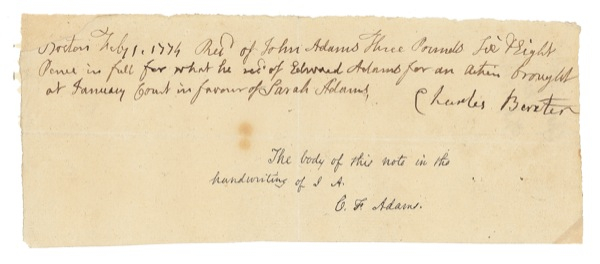 Boston Feby 1. 1774 Recd of John Adams Three Pounds Six & Eight
Pence in full for what he recd of Edward Adams for an action brought
at January Court in favour of Sarah Adams,
Charles
The body of this note in the
handwriting of J A.
C. F. Adams.